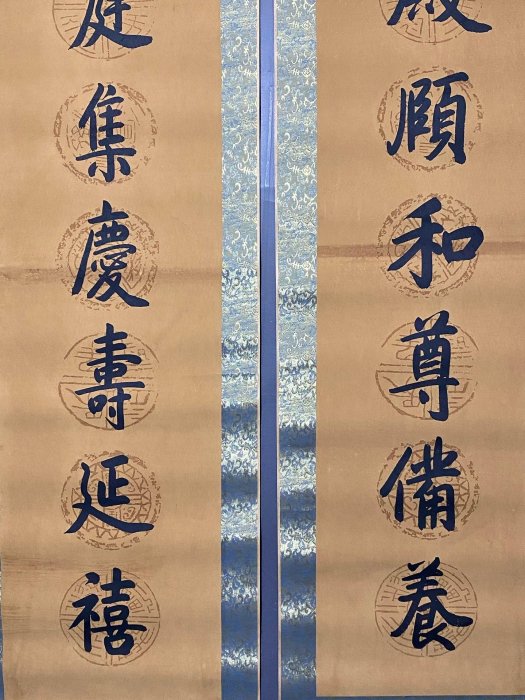 頤和尊備養
庭集慶壽延禧